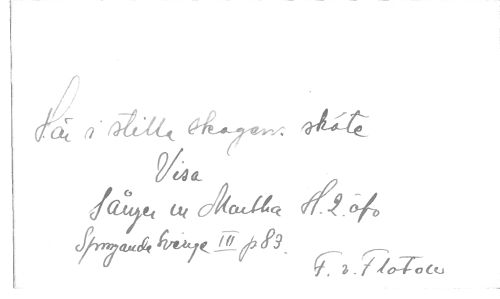 Här i stilla skogens sköte
Visa
Sånger ur Martha H. 2. öfo
Sjungande Sverige III p 83.
F. v. Flotow